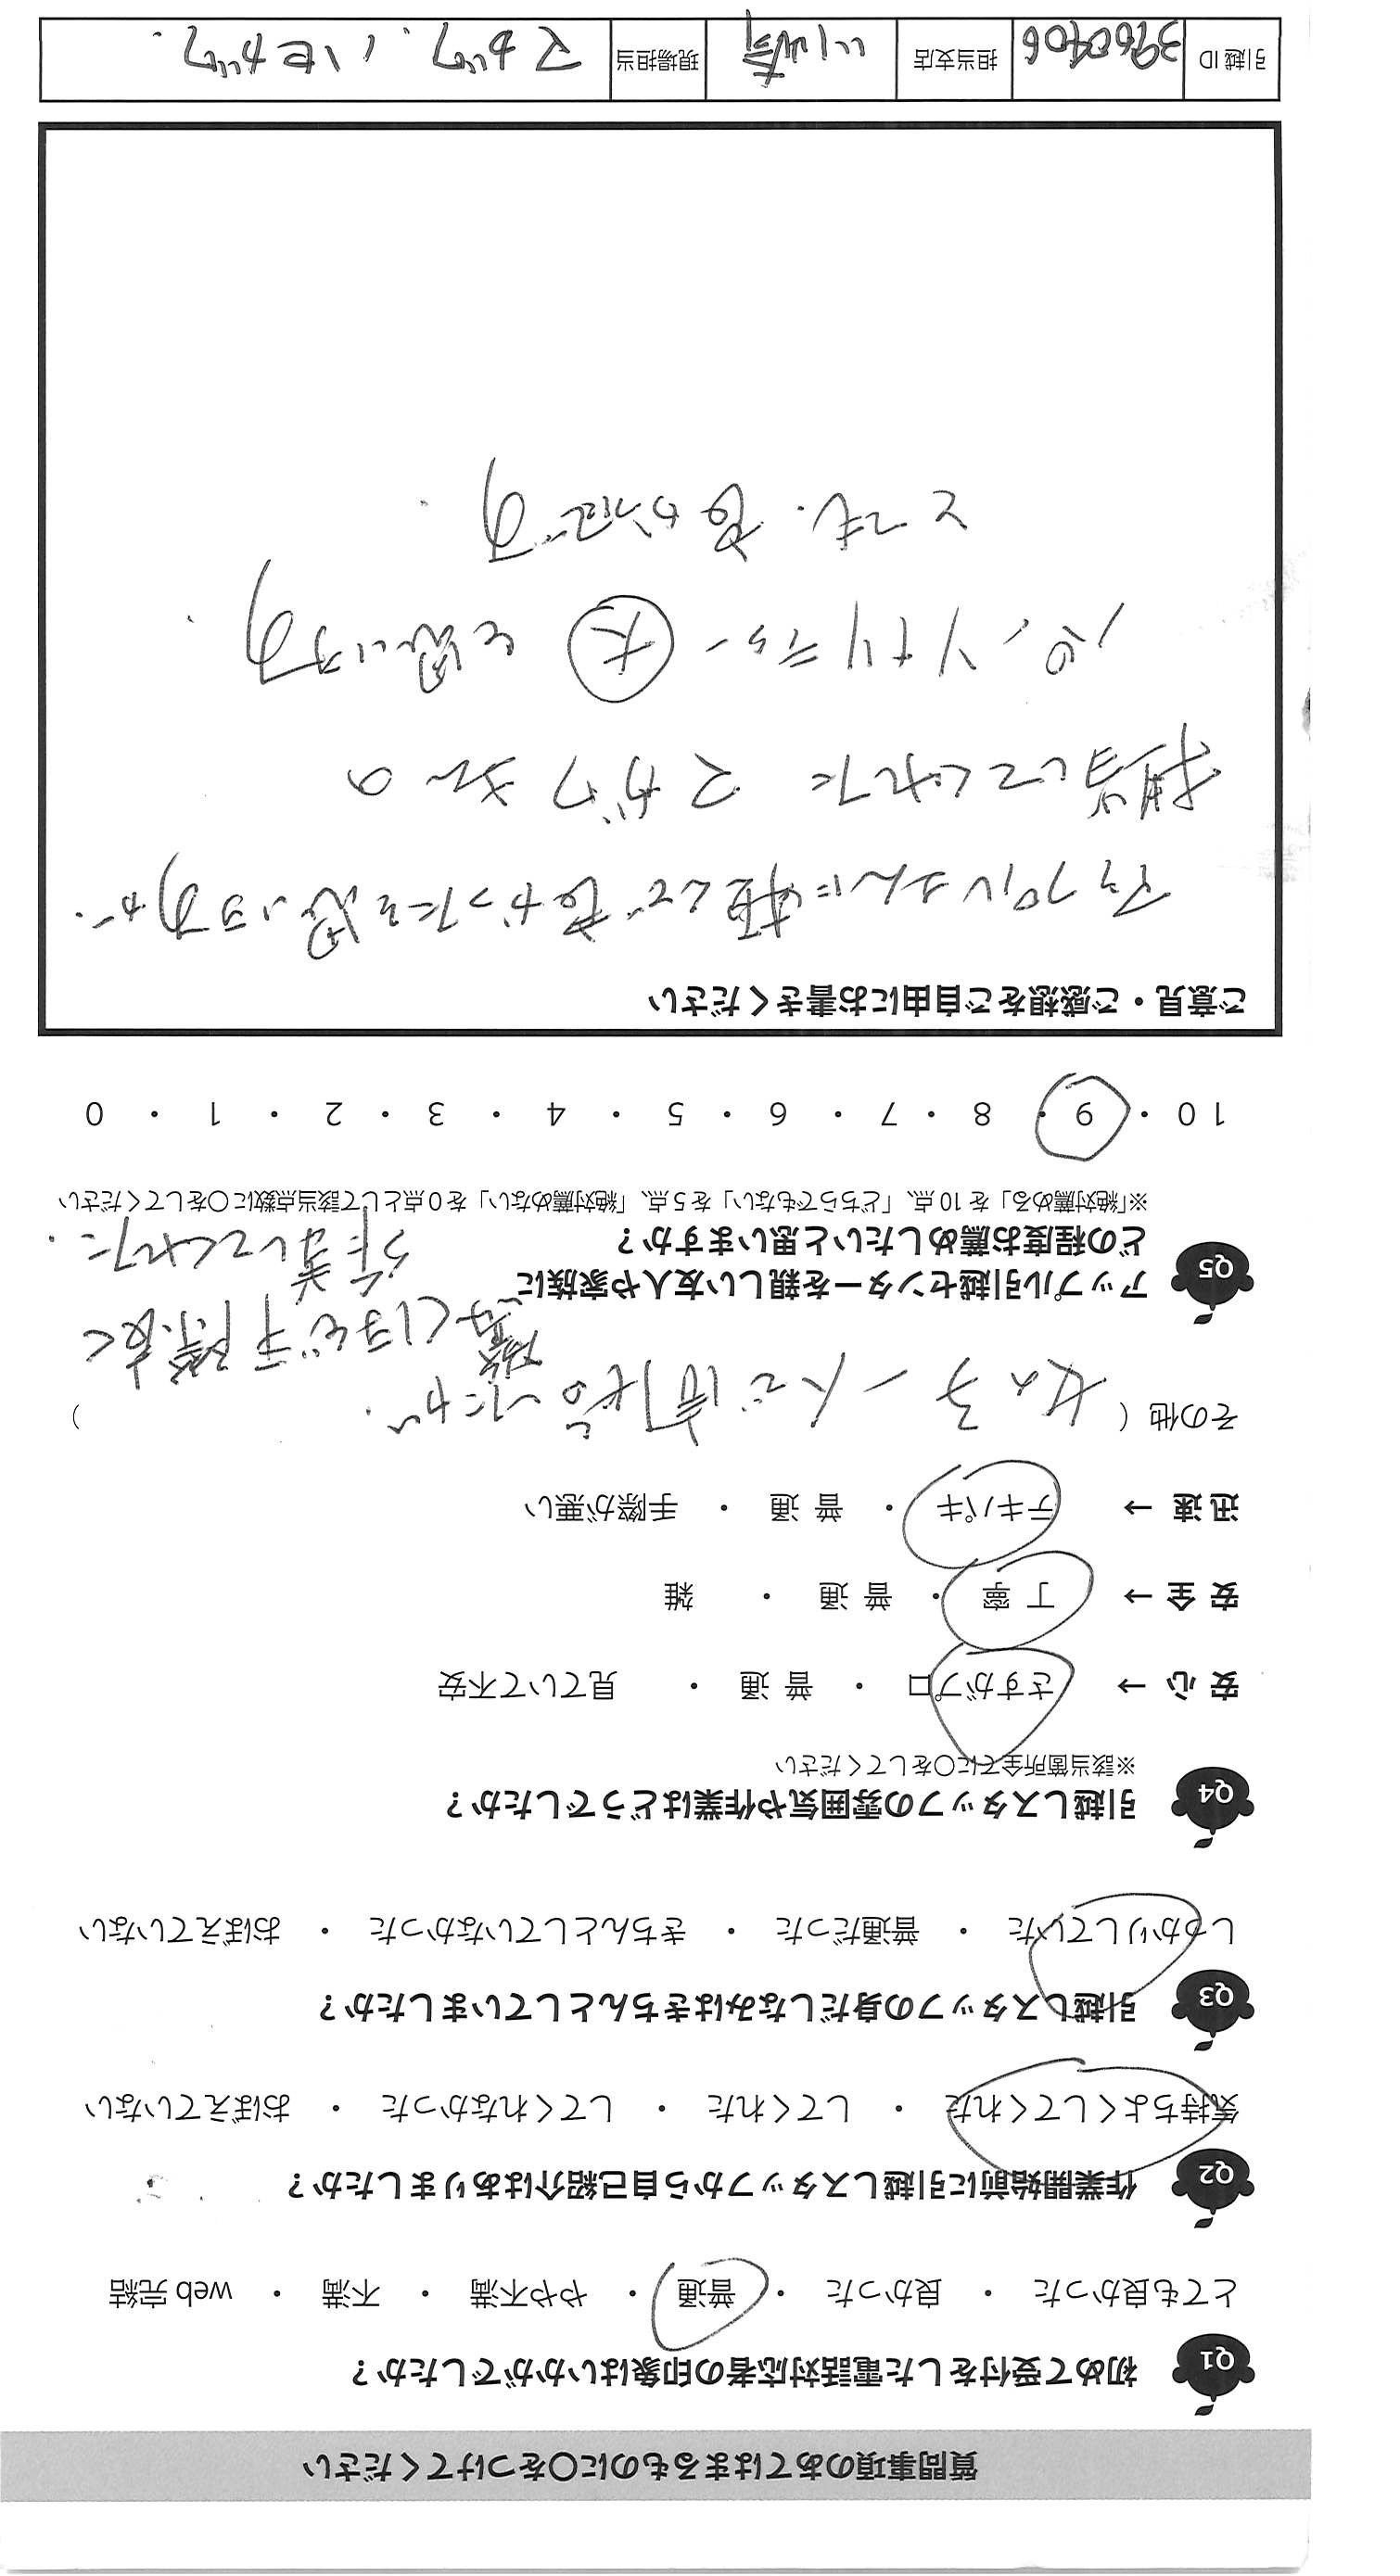 質問事項のあてはまるものに〇をつけてください
Q1 初めて受付をした電話対応者の印象はいかがでしたか？
とても良かった ・ 良かった ・ 普通 ・ やや不満 ・ 不満 ・ web 完結
Q2 作業開始前に引越しスタッフから自己紹介はありましたか？
気持ちよくしてくれた ・ してくれた ・ してくれなかった ・ おぼえていない
Q3 引越しスタッフの身だしなみはきちんとしていましたか？
しっかりしていた ・ 普通だった ・ きちんとしていなかった ・ おぼえていない
Q4 引越しスタッフの雰囲気や作業はどうでしたか？
※該当箇所全てに〇をしてください
安 心 → さすがプロ ・ 普 通 ・ 見ていて不安
安 全 → 丁 寧 ・ 普 通 ・ 雑
迅 速 → テキパキ ・ 普 通 ・ 手際が悪い
その他（ 女の子 一人で
驚くほど手際良く
作業してくれた. ）
Q5 アップル引越センターを親しい友人や家族に
どの程度お薦めしたいと思いますか？
※「絶対薦める」を 10 点、「どちらでもない」を 5 点、「絶対薦めない」を 0 点として該当点数に〇をしてください
10 ・ 9 ・ 8 ・ 7 ・ 6 ・ 5 ・ 4 ・ 3 ・ 2 ・ 1 ・ 0
ご意見・ご感想をご自由にお書きください
アップルさんに頼んで良かったと思いますが.
担当してくれた マガワさんの
大 と思います.
とても. 良かったです.
引越 ID 3960406 担当支店 川崎 現場担当 マガワ. ハセガワ.